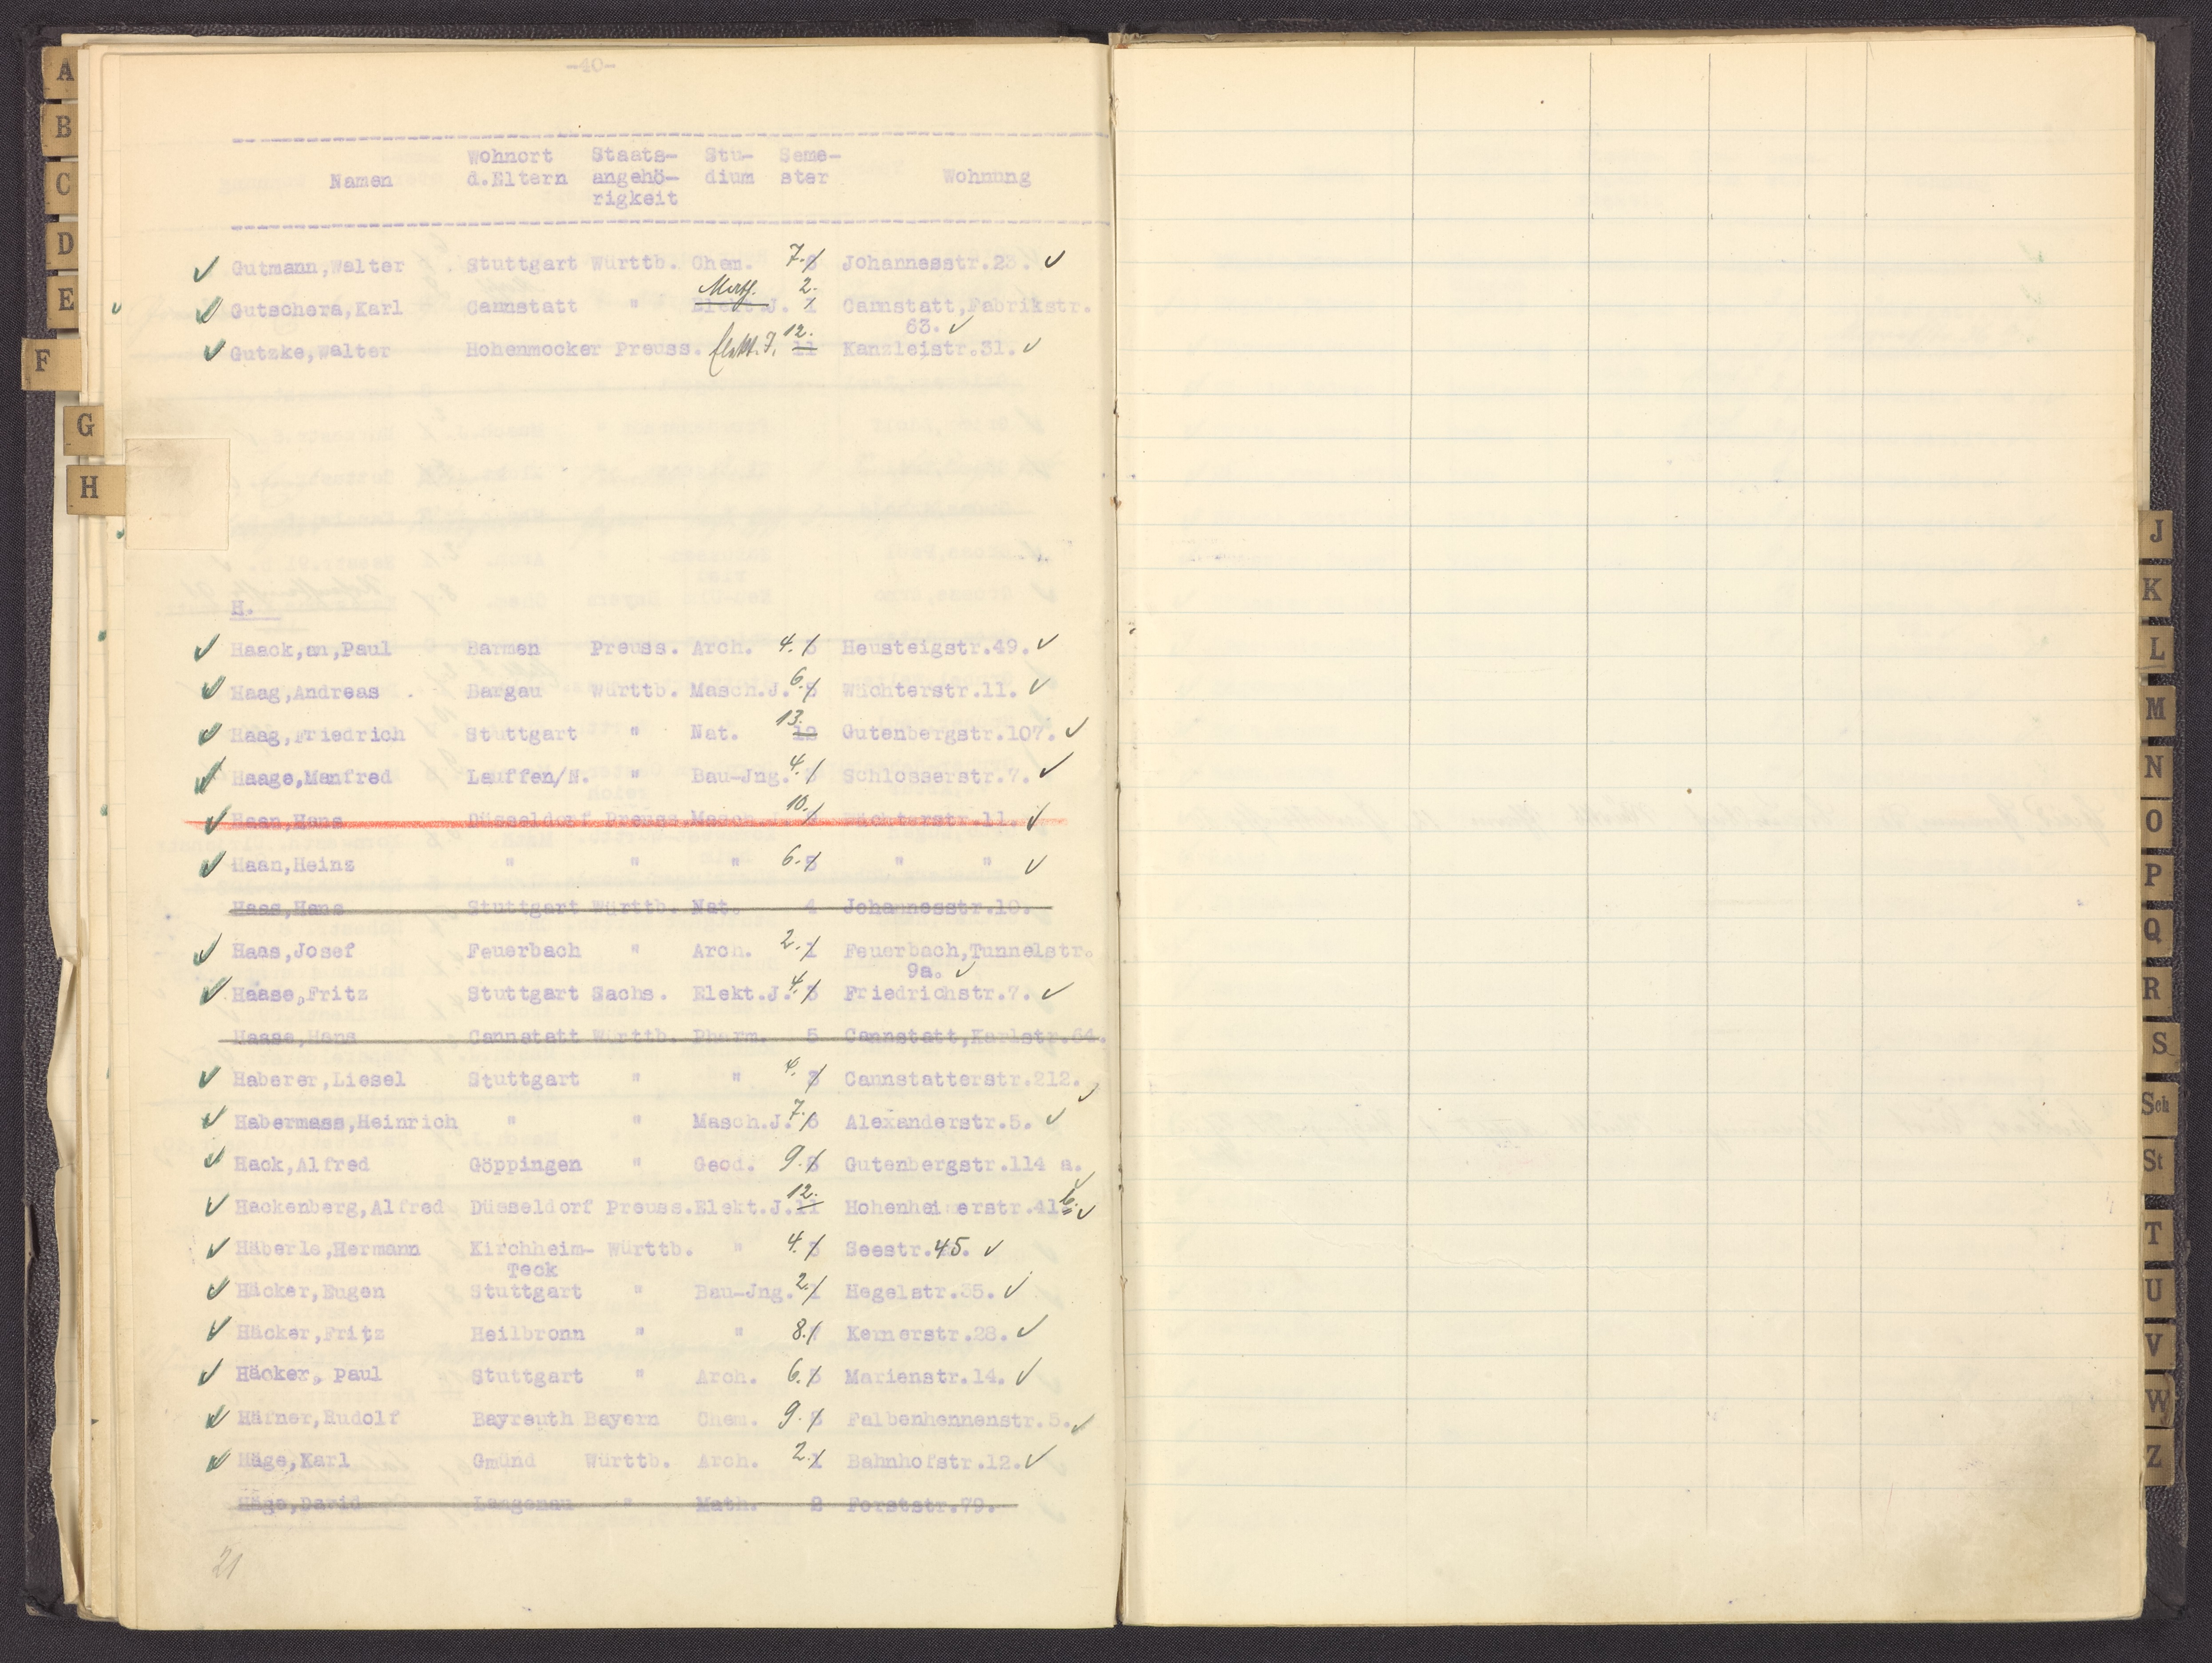 -40-
Wohnort Staats- Stu- Seme-
Namen d.Eltern angehö- dium ster Wohnung
rigkeit
Gutmann,Walter Stuttgart Württb. Chem. 7. 6 Johannesstr.23.
Math. 2.
Gutschera,Karl Cannstatt " Elekt.J. 1 Cannstatt,Fabrikstr.
63.
Gutzke,Walter Hohenmocker Preuss. Elekt.J. 12. 11 Kanzleistr.31.
H.
Haack,an,Paul Barmen Preuss. Arch. 4. 3 Heusteigstr.49.
Haag,Andreas Bargau Württb. Masch.J. 6. 5 Wächterstr.11.
Haag,Friedrich Stuttgart " Nat. 13. 12 Gutenbergstr.107.
Haage,Manfred Lauffen/N. " Bau-Jng. 4. 3 Schlosserstr.7.
Haan,Hans Düsseldorf Preuss.Masch. 10. Wächterstr.11.
Haan,Heinz " " " 6. 5 " "
Haas,Hans Stuttgart Württb. Nat. 4 Johannesstr.10.
Haas,Josef Feuerbach " Arch. 2. 1 Feuerbach,Tunnelstr.
9a.
Haase,Fritz Stuttgart Sachs. Elekt.J. 4. 3 Friedrichstr.7.
Haase,Hans Cannstatt Württb. Pharm. 5 Cannstatt,Karlstr.64.
Haberer,Liesel Stuttgart " " 4. 3 Cannstatterstr.212.
Habermass,Heinrich " " Masch.J. 7. 6 Alexanderstr.5.
Hack,Alfred Göppingen " Geod. 9. 8 Gutenbergstr.114 a.
Hackenberg,Alfred Düsseldorf Preuss.Elekt.J. 12. 11 Hohenheimerstr.41 b.
Häberle,Hermann Kirchheim- Württb. " 4. 3 Seestr.45.
Teck
Häcker,Eugen Stuttgart " Bau-Jng. 2. 1 Hegelstr.35.
Häcker,Fritz Heilbronn " " 8. 7 Kernerstr.28.
Häcker, Paul Stuttgart " Arch. 6. 5 Marienstr.14.
Häfner,Rudolf Bayreuth Bayern Chem. 9. 8 Falbenhennenstr.5.
Häge,Karl Gmünd Württb. Arch. 2. 1 Bahnhofstr.12.
Häge,David Langenau " Math. 2 Forststr.79.
21
A
B
C
D
E
F
G
H
J
K
L
M
N
O
P
Q
R
S
Sch
St
T
U
V
W
Z